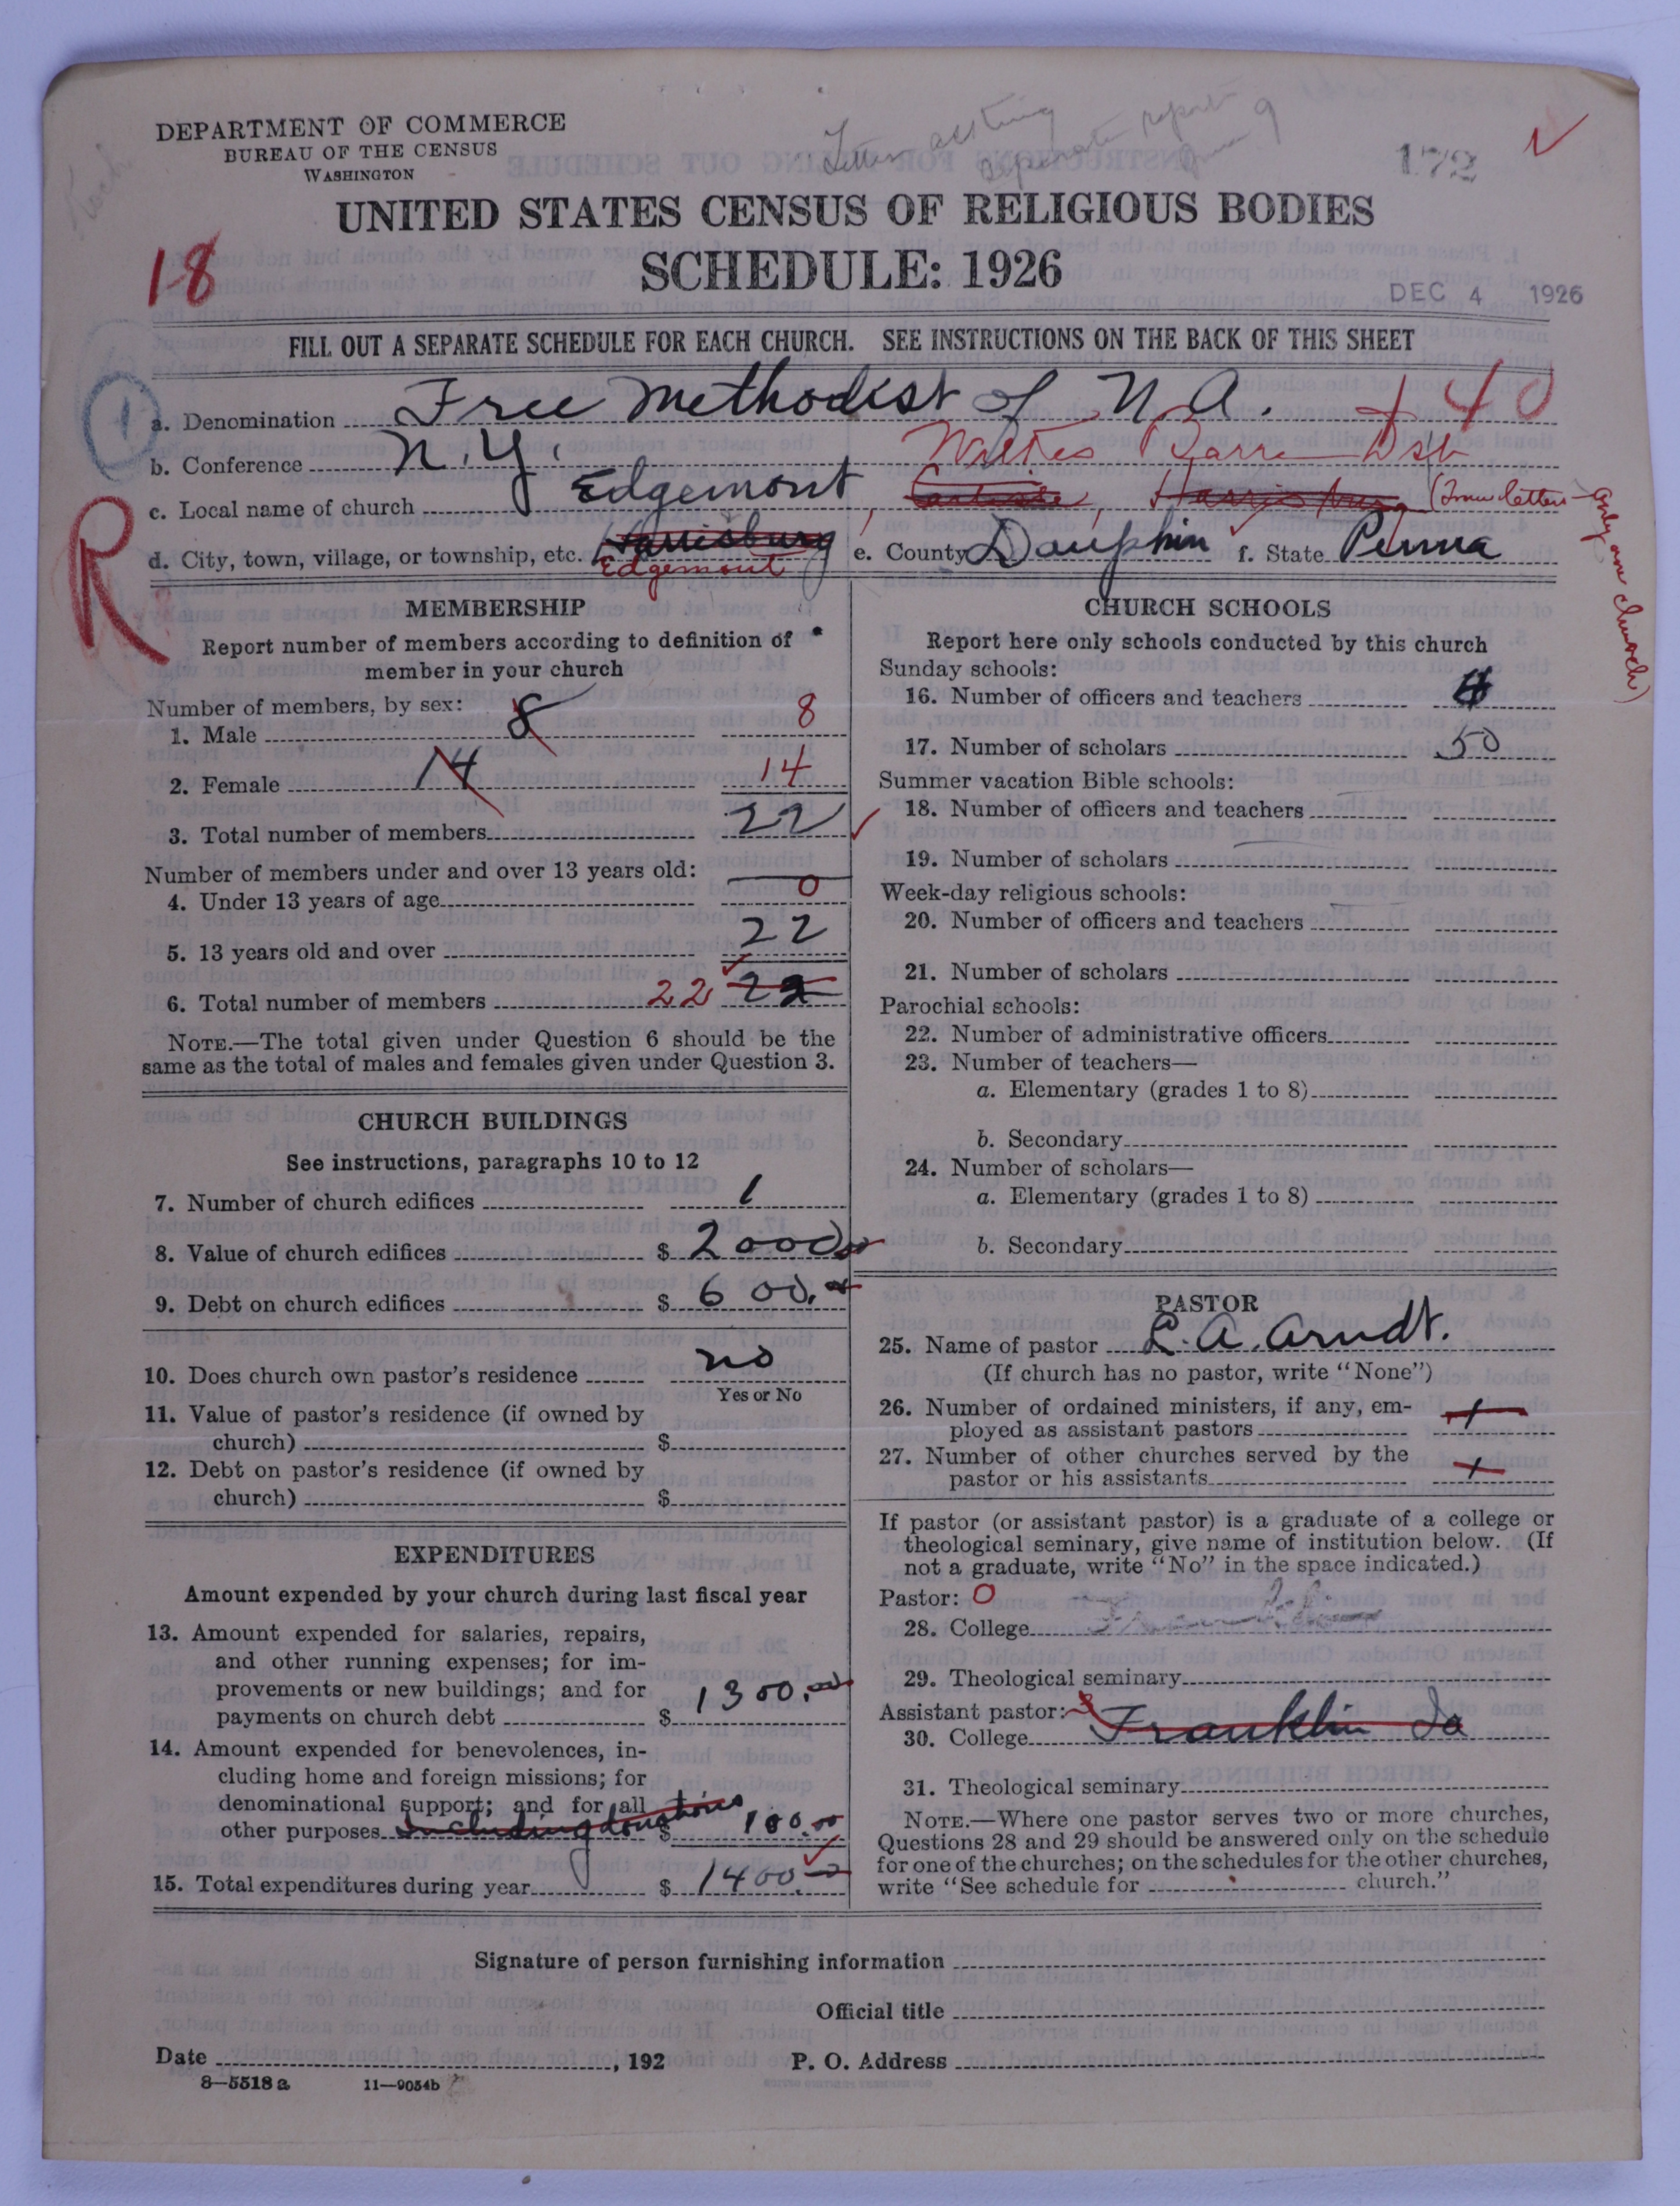 DEPARTMENT OF COMMERCE
BUREAU OF THE CENSUS
WASHINGTON
Letter asking separate report
172
UNITED STATES CENSUS OF RELIGIOUS BODIES
SCHEDULE: 1926
18
DEC 4 1926
FILL OUT A SEPARATE SCHEDULE FOR EACH CHURCH. SEE INSTRUCTIONS ON THE BACK OF THIS SHEET
1
a. Denomination Free Methodist of N. A. 140
b. Conference N. Y. Wilkes Barre Dist
c. Local name of church Edgemont, Carlisle, Harrisburg (From letter - only one church)
R
d. City, town, village, or township, etc. Harrisburg Edgemont e. County Dauphin f. State Penna
MEMBERSHIP
Report number of members according to definition of member in your church
Number of members, by sex:
1. Male 8 8
2. Female 14 14
3. Total number of members 22
Number of members under and over 13 years old:
4. Under 13 years of age 0
5. 13 years old and over 22
6. Total number of members 22 22
NOTE.—The total given under Question 6 should be the
same as the total of males and females given under Question 3.
CHURCH BUILDINGS
See instructions, paragraphs 10 to 12
7. Number of church edifices 1
8. Value of church edifices $ 2000.00
9. Debt on church edifices $ 600.
10. Does church own pastor's residence no
Yes or No
11. Value of pastor's residence (if owned by
church) $
12. Debt on pastor's residence (if owned by
church) $
EXPENDITURES
Amount expended by your church during last fiscal year
13. Amount expended for salaries, repairs,
and other running expenses; for im-
provements or new buildings; and for
payments on church debt $ 1300.00
14. Amount expended for benevolences, in-
cluding home and foreign missions; for
denominational support; and for all
other purposes Including donations $ 100.00
15. Total expenditures during year $ 1400.
CHURCH SCHOOLS
Report here only schools conducted by this church
Sunday schools:
16. Number of officers and teachers
17. Number of scholars 50
Summer vacation Bible schools:
18. Number of officers and teachers
19. Number of scholars
Week-day religious schools:
20. Number of officers and teachers
21. Number of scholars
Parochial schools:
22. Number of administrative officers
23. Number of teachers—
a. Elementary (grades 1 to 8)
b. Secondary
24. Number of scholars—
a. Elementary (grades 1 to 8)
b. Secondary
PASTOR
25. Name of pastor L. A. Arndt.
(If church has no pastor, write "None")
26. Number of ordained ministers, if any, em-
ployed as assistant pastors
27. Number of other churches served by the
pastor or his assistants
If pastor (or assistant pastor) is a graduate of a college or
theological seminary, give name of institution below. (If
not a graduate, write "No" in the space indicated.)
Pastor: 0
28. College
29. Theological seminary
Assistant pastor:
30. College Franklin Ia
31. Theological seminary
NOTE.—Where one pastor serves two or more churches,
Questions 28 and 29 should be answered only on the schedule
for one of the churches; on the schedules for the other churches,
write "See schedule for church."
Signature of person furnishing information
Official title
Date , 192 P. O. Address
8—5518 a 11—9054b